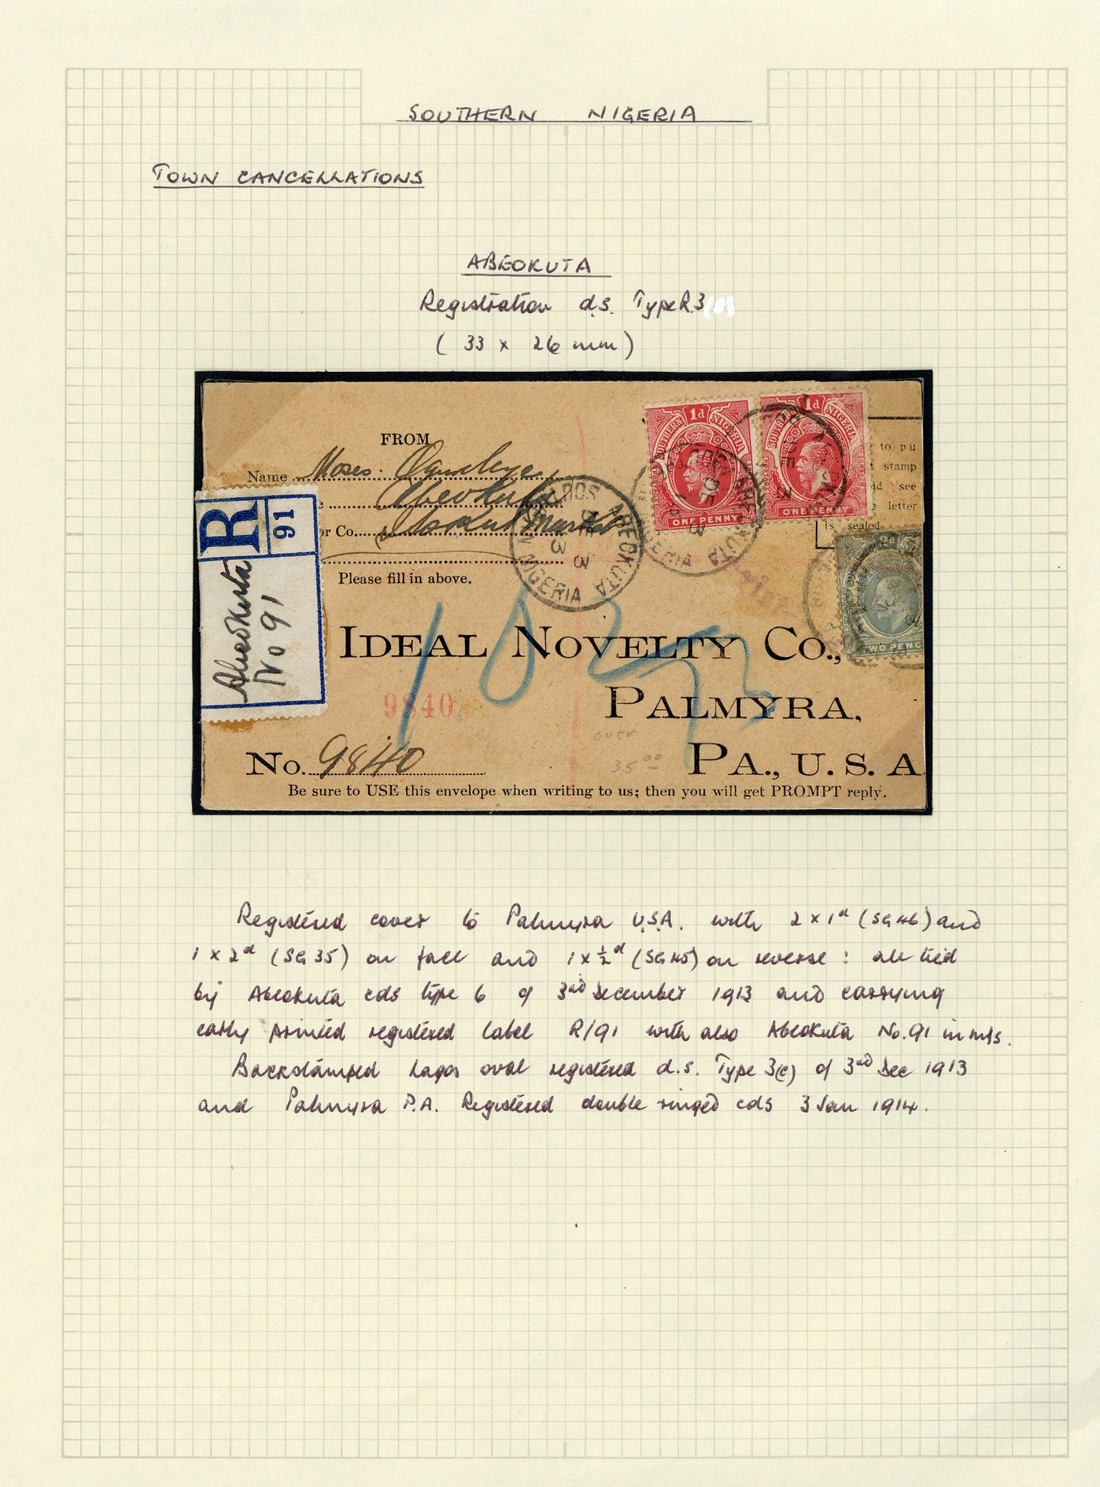 SOUTHERN NIGERIA
TOWN CANCELLATIONS
ABEOKUTA
Registration d.s. Type R.3
( 33 x 26 mm )
1d 1d
SOUTHERN NIGERIA SOUTHERN NIGERIA
ONE PENNY ONE PENNY
FROM
Name Moses.
Abeokuta
or Co.
Please fill in above.
to pu
stamp
nd see
letter
is sealed
ABEOKUTA
NIGERIA
TWO PENC
R 91
Abeokuta
No 91
1023
IDEAL NOVELTY CO.,
9840
PALMYRA,
over
35 00
No. 9840
PA., U. S. A
Be sure to USE this envelope when writing to us; then you will get PROMPT reply.
Registered cover to Palmyra U.S.A. with 2 x 1d (SG46) and
1 x 2d (SG35) on face and 1 x ½d (SG45) on reverse : all tied
by Abeokuta cds type 6 of 3rd December 1913 and carrying
early printed registered label R/91 with also Abeokuta No.91 in m/s.
Backstamped Lagos oval registered d.s. Type 3(c) of 3rd Dec 1913
and Palmyra P.A. Registered double ringed cds 3 Jan 1914.